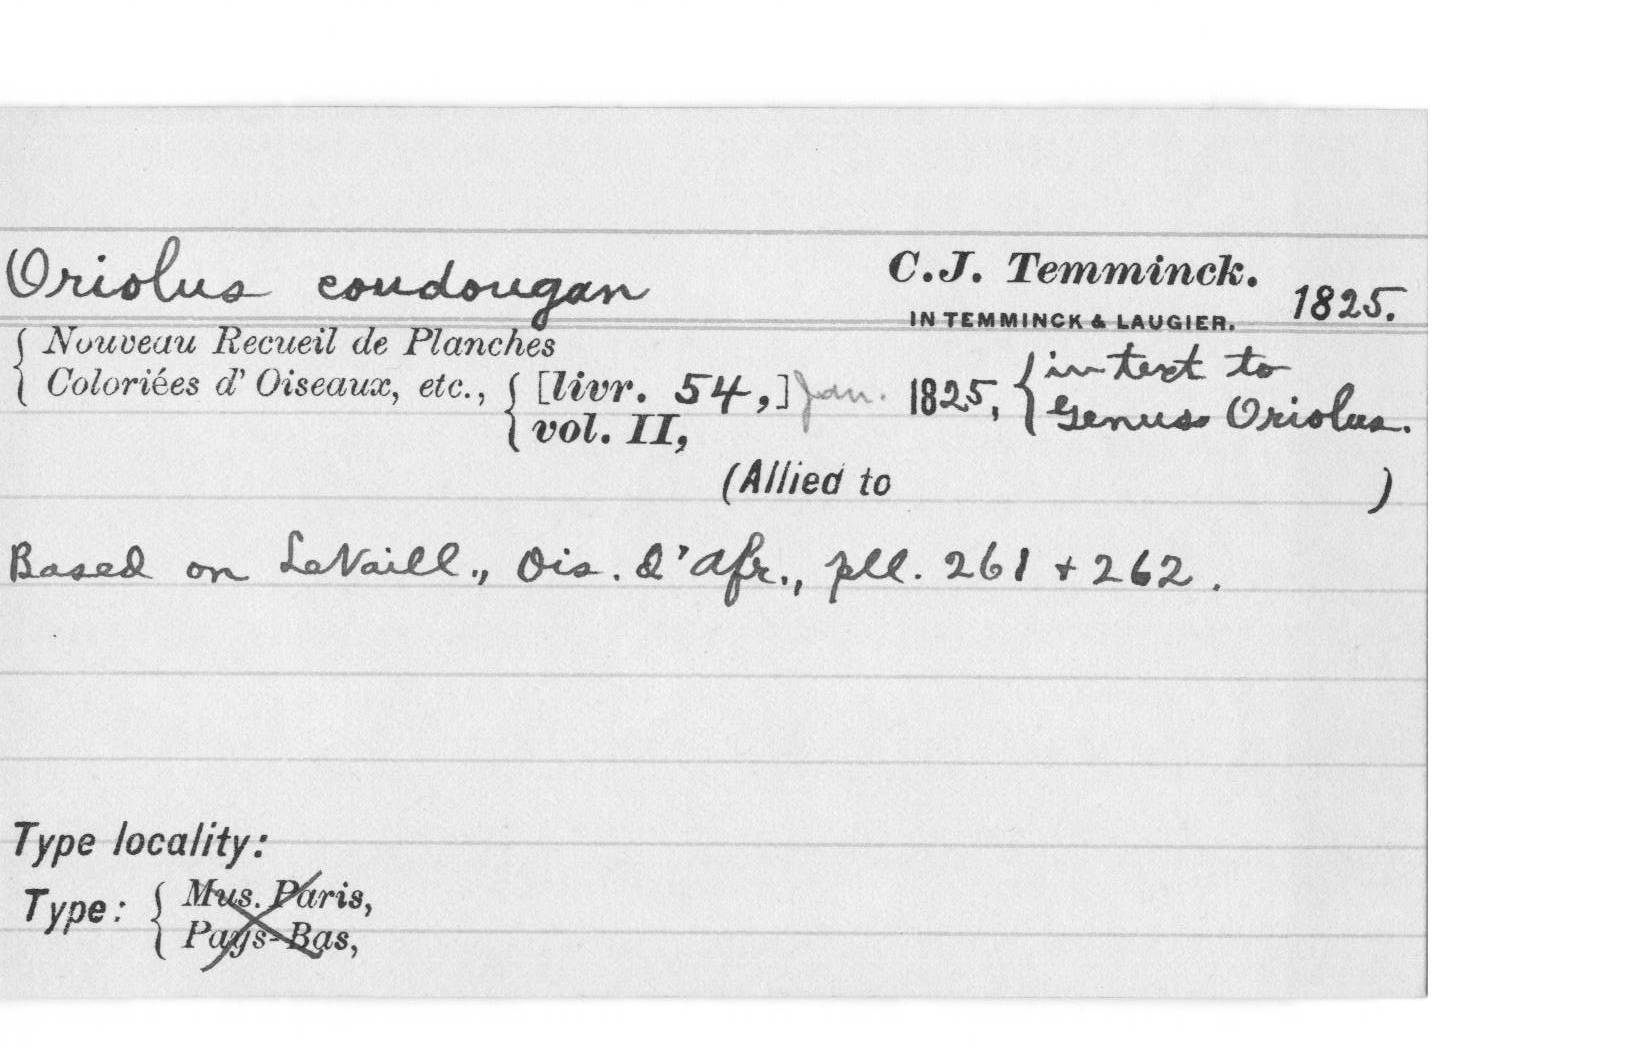 Oriolus coudougan C.J. Temminck. 1825.
IN TEMMINCK & LAUGIER.
Nouveau Recueil de Planches
Coloriées d' Oiseaux, etc., [livr. 54,] Jan. 1825, in text to
vol. II, Genus Oriolus.
(Allied to )
Based on LeVaill., Ois. d'Afr., pll. 261 + 262.
Type locality:
Type: Mus. Paris,
Pays-Bas,